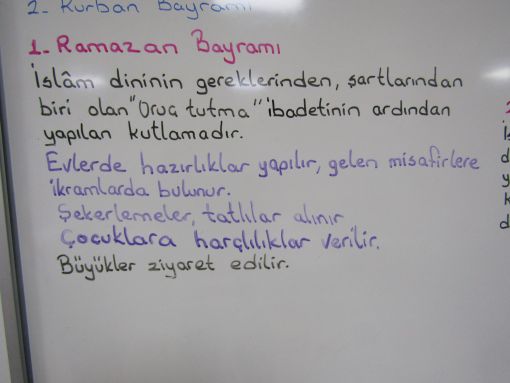 2. Kurban Bayramı
1. Ramazan Bayramı
İslâm dininin gereklerinden, şartlarından
biri olan "Oruç tutma" ibadetinin ardından
yapılan kutlamadır.
Evlerde hazırlıklar yapılır, gelen misafirlere
ikramlarda bulunur.
Şekerlemeler, tatlılar alınır
Çocuklara harçlılıklar verilir.
Büyükler ziyaret edilir.